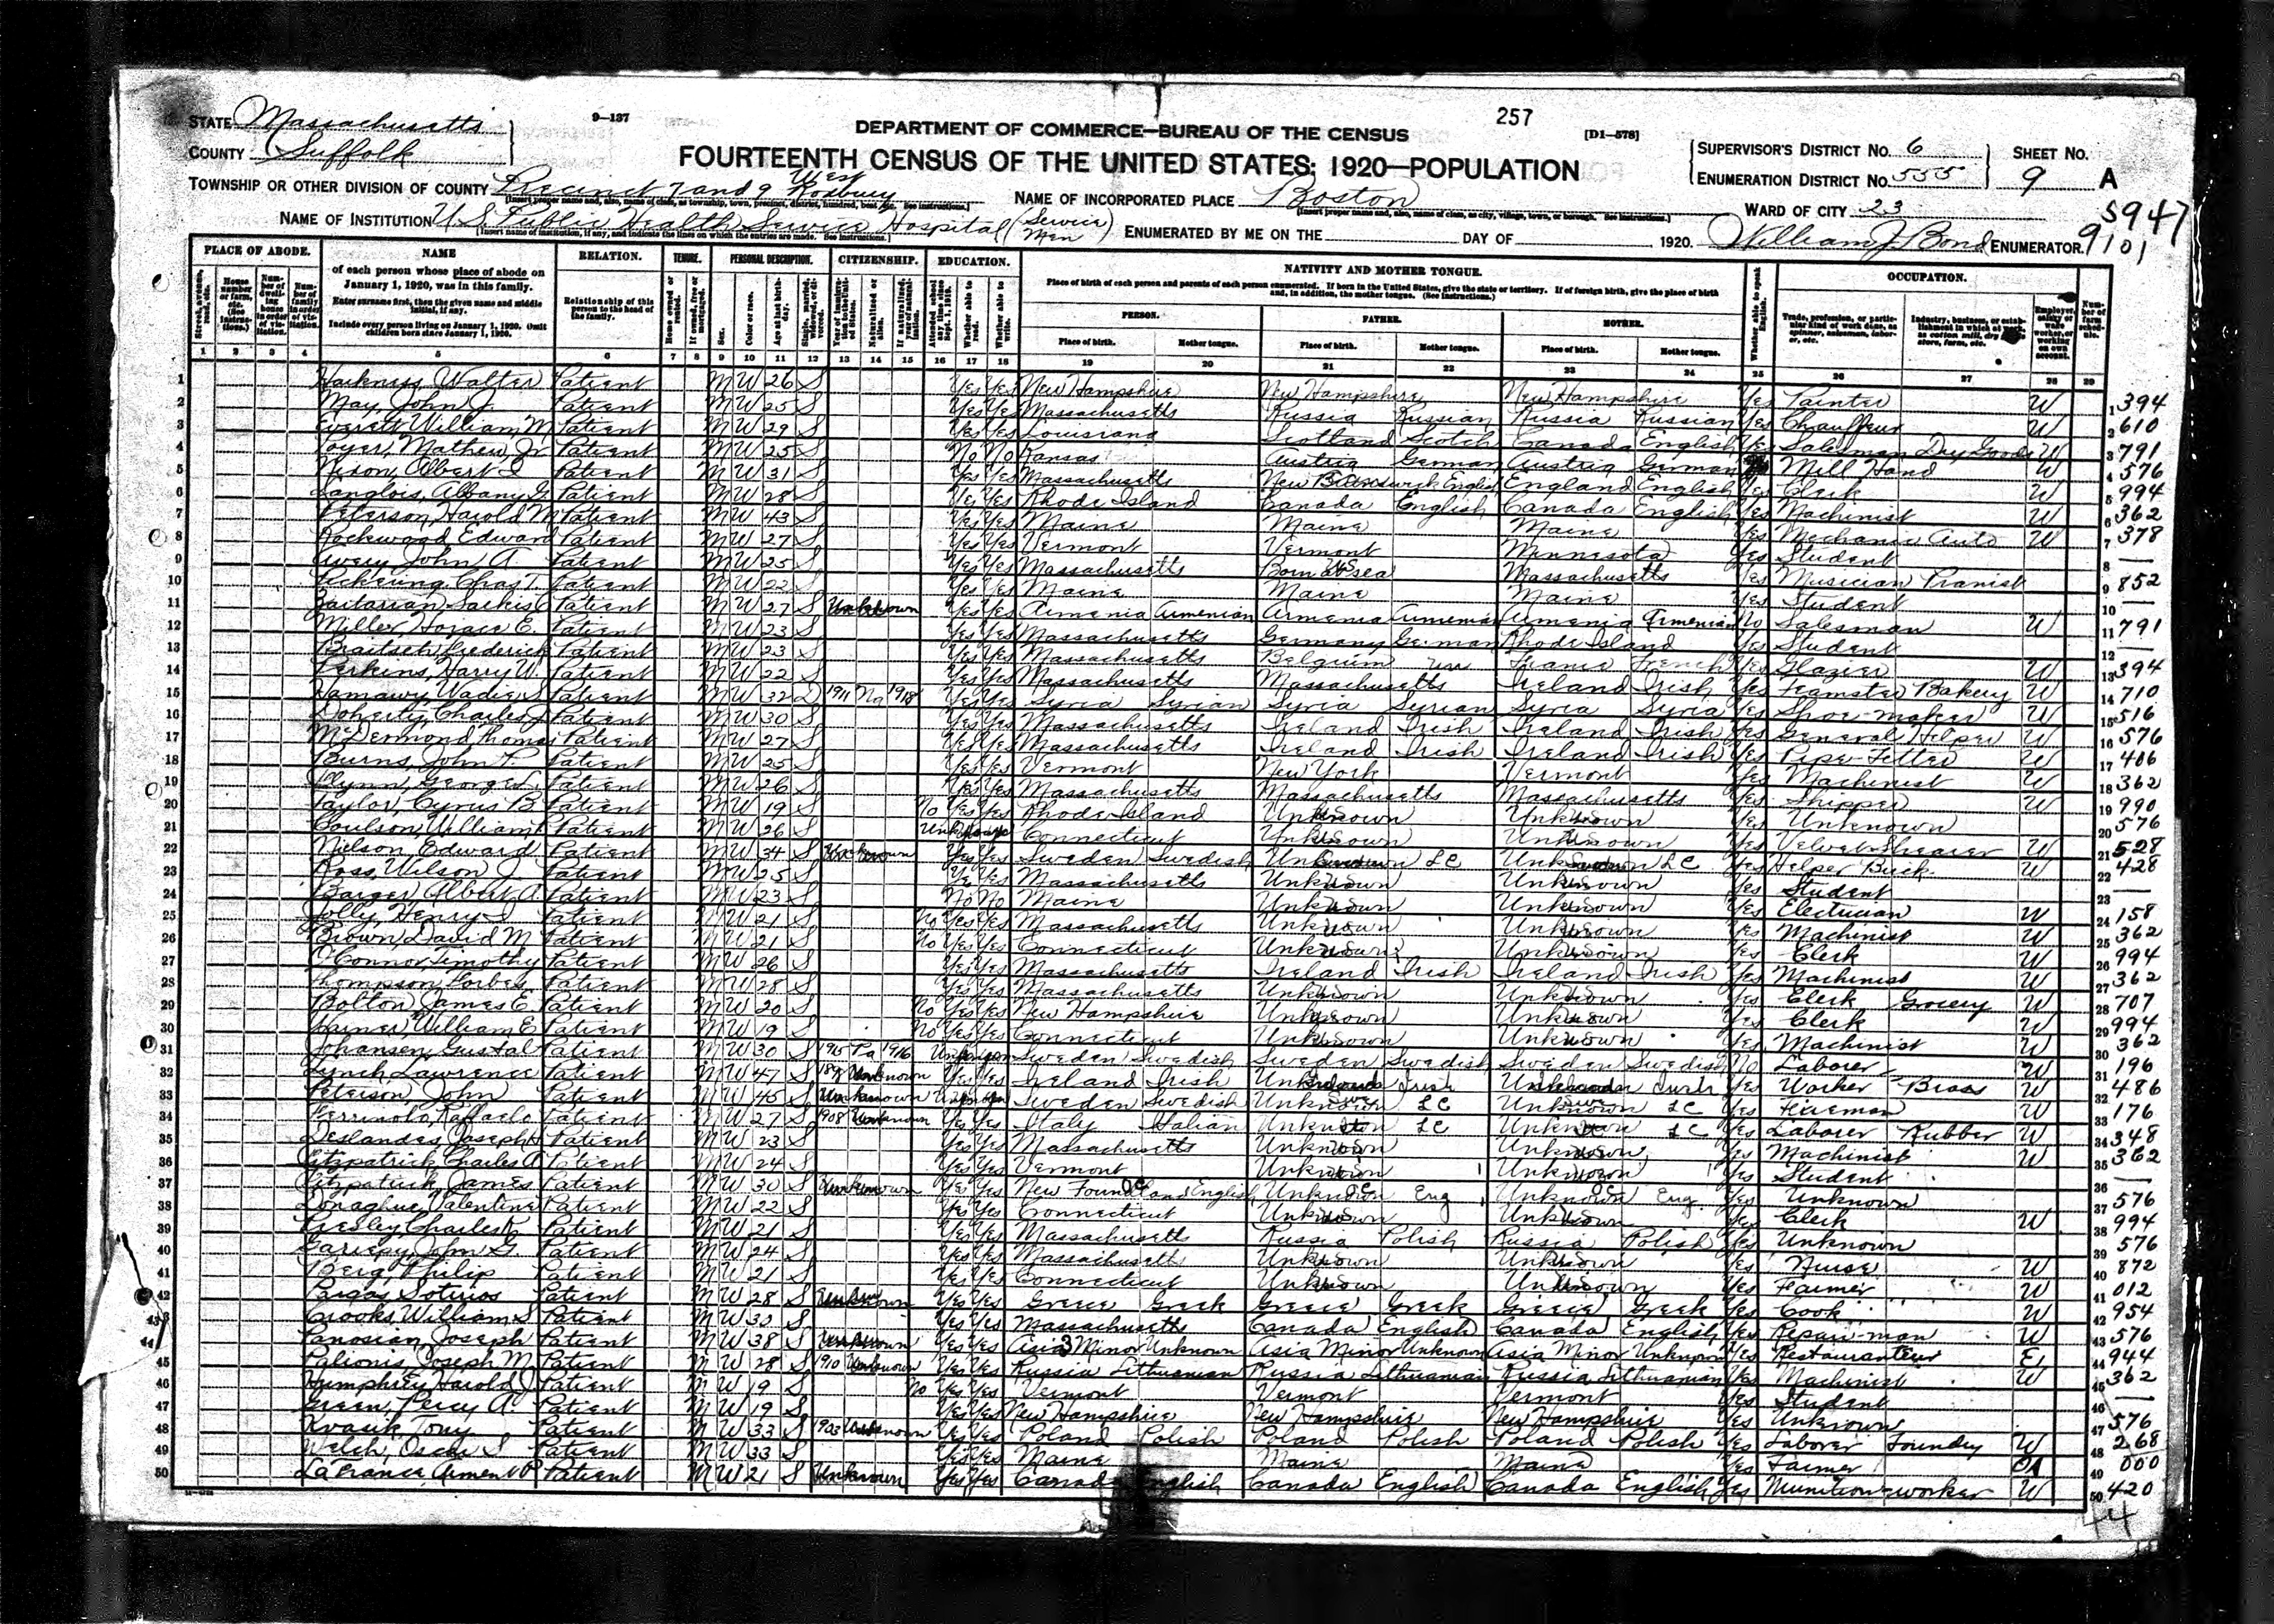 257
9—137
[D1—578]
DEPARTMENT OF COMMERCE—BUREAU OF THE CENSUS
FOURTEENTH CENSUS OF THE UNITED STATES: 1920—POPULATION
STATE Massachusetts
COUNTY Suffolk
SUPERVISOR'S DISTRICT No. 6
ENUMERATION DISTRICT No. 555
SHEET No. 9 A
TOWNSHIP OR OTHER DIVISION OF COUNTY Precinct 7 and 9 West Roxbury
NAME OF INCORPORATED PLACE Boston
WARD OF CITY 23
5947
9101
NAME OF INSTITUTION U.S. Public Health Service Hospital (Service Men)
ENUMERATED BY ME ON THE DAY OF 1920. William J. Bond ENUMERATOR.
PLACE OF ABODE. NAME RELATION. TENURE. PERSONAL DESCRIPTION. CITIZENSHIP. EDUCATION. NATIVITY AND MOTHER TONGUE. OCCUPATION.
of each person whose place of abode on January 1, 1920, was in this family.
Enter surname first, then the given name and middle initial, if any.
Include every person living on January 1, 1920. Omit children born since January 1, 1920.
Relationship of this person to the head of the family.
Place of birth of each person and parents of each person enumerated. If born in the United States, give the state or territory. If of foreign birth, give the place of birth and, in addition, the mother tongue. (See instructions.)
PERSON. FATHER. MOTHER.
Place of birth. Mother tongue. Place of birth. Mother tongue. Place of birth. Mother tongue.
1 2 3 4 5 6 7 8 9 10 11 12 13 14 15 16 17 18 19 20 21 22 23 24 25 26 27 28 29
1 Harkness, Walter Patient M W 26 S Yes Yes New Hampshire New Hampshire New Hampshire Yes Painter W 394
2 May, John J. Patient M W 25 S Yes Yes Massachusetts Russia Russian Russia Russian Yes Chauffeur W 610
3 Everett William M Patient M W 29 S Yes Yes Louisiana Scotland Scotch Canada English Yes Salesman Dry Goods W 791
4 Poyer, Mathew, Jr Patient M W 25 S No No Kansas Austria German Austria German Mill Hand W 576
5 Nixon, Albert Patient M W 31 S Yes Yes Massachusetts New Brunswick English England English Yes Clerk W 994
6 Langlois, Albany G Patient M W 28 S Yes Yes Rhode Island Canada English Canada English Yes Machinist W 362
7 Peterson, Harold M Patient M W 43 S Yes Yes Maine Maine Maine Yes Mechanic Auto W 378
8 Rockwood Edward Patient M W 27 S Yes Yes Vermont Vermont Minnesota Yes Student
9 Avery John A Patient M W 25 S Yes Yes Massachusetts Born at sea Massachusetts Yes Musician Pianist 852
10 Pickering, Chas T. Patient M W 22 S Yes Yes Maine Maine Maine Yes Student
11 Zaitarian Sarkis Patient M W 27 S Unknown Yes Yes Armenia Armenian Armenia Armenian Armenia Armenian No Salesman W 791
12 Miller, Horace E. Patient M W 23 S Yes Yes Massachusetts Germany German Rhode Island Yes Student
13 Braitsch, Frederick Patient M W 23 S Yes Yes Massachusetts Belgium France French Yes Glazier W 394
14 Perkins, Harry W. Patient M W 22 S Yes Yes Massachusetts Massachusetts Ireland Irish Yes Teamster Bakery W 710
15 Hamawy Wadie S Patient M W 32 D 1911 Na 1918 Yes Yes Syria Syrian Syria Syrian Syria Syria Yes Shoe-maker W 516
16 Doherty, Charles J Patient M W 30 S Yes Yes Massachusetts Ireland Irish Ireland Irish Yes General Helper W 576
17 McDermond Thomas Patient M W 27 S Yes Yes Massachusetts Ireland Irish Ireland Irish Yes Pipe-Fitter W 406
18 Burns, John F. Patient M W 25 S Yes Yes Vermont New York Vermont Yes Machinist W 362
19 Flynn, George L. Patient M W 26 S Yes Yes Massachusetts Massachusetts Massachusetts Yes Shipper W 990
20 Taylor, Cyrus B Patient M W 19 S No Yes Yes Rhode Island Unknown Unknown Yes Unknown 576
21 Coulson, William Patient M W 26 S Unknown Connecticut Unknown Unknown Yes Velvet-Shearer W 528
22 Nielson, Edward Patient M W 34 S Unknown Yes Yes Sweden Swedish Unknown LC Unknown LC Yes Helper Buick W 428
23 Ross, Wilson J. Patient M W 25 S Yes Yes Massachusetts Unknown Unknown Yes Student
24 Barger, Albert A. Patient M W 23 S No No Maine Unknown Unknown Yes Electrician W 158
25 Jolly, Henry Patient M W 21 S No Yes Yes Massachusetts Unknown Unknown Yes Machinist W 362
26 Brown, David M Patient M W 21 S No Yes Yes Connecticut Unknown Unknown Yes Clerk W 994
27 O'Connor, Timothy Patient M W 26 S Yes Yes Massachusetts Ireland Irish Ireland Irish Yes Machinist W 362
28 Thompson, Forbes Patient M W 28 S Yes Yes Massachusetts Unknown Unknown Yes Clerk Grocery W 707
29 Bolton, James E. Patient M W 20 S No Yes Yes New Hampshire Unknown Unknown Yes Clerk W 994
30 William E Patient M W 19 S No Yes Yes Connecticut Unknown Unknown Yes Machinist W 362
31 Johansen, Gustaf Patient M W 30 S 1915 Pa 1916 Unknown Sweden Swedish Sweden Swedish Sweden Swedish No Laborer W 196
32 Lynch, Lawrence Patient M W 47 S Unknown Yes Yes Ireland Irish Unknown Irish Unknown Irish Yes Worker Brass W 486
33 Peterson, John Patient M W 45 S Unknown Unknown Sweden Swedish Unknown LC Unknown LC Yes Fireman W 176
34 Raffaelo Patient M W 27 S 1908 Unknown Yes Yes Italy Italian Unknown LC Unknown LC Yes Laborer Rubber W 348
35 Deslandes, Joseph Patient M W 23 S Yes Yes Massachusetts Unknown Unknown Yes Machinist W 362
36 Fitzpatrick Charles A Patient M W 24 S Yes Yes Vermont Unknown Unknown Yes Student
37 Fitzpatrick, James Patient M W 30 S Unknown Yes Yes New Foundland English Unknown Eng Unknown Eng Yes Unknown 576
38 Donaghue, Valentine Patient M W 22 S Yes Yes Connecticut Unknown Unknown Yes Clerk W 994
39 Charles Patient M W 21 S Yes Yes Massachusetts Russia Polish Russia Polish Yes Unknown 576
40 Gariepy, John G. Patient M W 24 S Yes Yes Massachusetts Unknown Unknown Yes Nurse W 872
41 Berg, Philip Patient M W 21 S Yes Yes Connecticut Unknown Unknown Yes Farmer W 012
42 Pargas Sotirios Patient M W 28 S Unknown Yes Yes Greece Greek Greece Greek Greece Greek Yes Cook W 954
43 Crooks, William S Patient M W 30 S Yes Yes Massachusetts Canada English Canada English Yes Repair-man W 576
44 Panosian, Joseph Patient M W 38 S Unknown Yes Yes Asia Minor Unknown Asia Minor Unknown Asia Minor Unknown Yes Restauranteur 944
45 Palionis, Joseph M Patient M W 28 S 1910 Unknown Yes Yes Russia Lithuanian Russia Lithuanian Russia Lithuanian Yes Machinist W 362
46 Humphrey Harold J Patient M W 19 S No Yes Yes Vermont Vermont Vermont Yes Student
47 Green, Percy A. Patient M W 19 S Yes Yes New Hampshire New Hampshire New Hampshire Yes Unknown 576
48 Kvasik Tony Patient M W 33 S 1903 Unknown Yes Yes Poland Polish Poland Polish Poland Polish Yes Laborer Foundry W 268
49 Welch, Oscar S Patient M W 33 S Yes Yes Maine Maine Maine Yes Farmer OA 000
50 LaFrance Arment P Patient M W 21 S Unknown Yes Yes Canada English Canada English Canada English Yes Munition-worker W 420
44